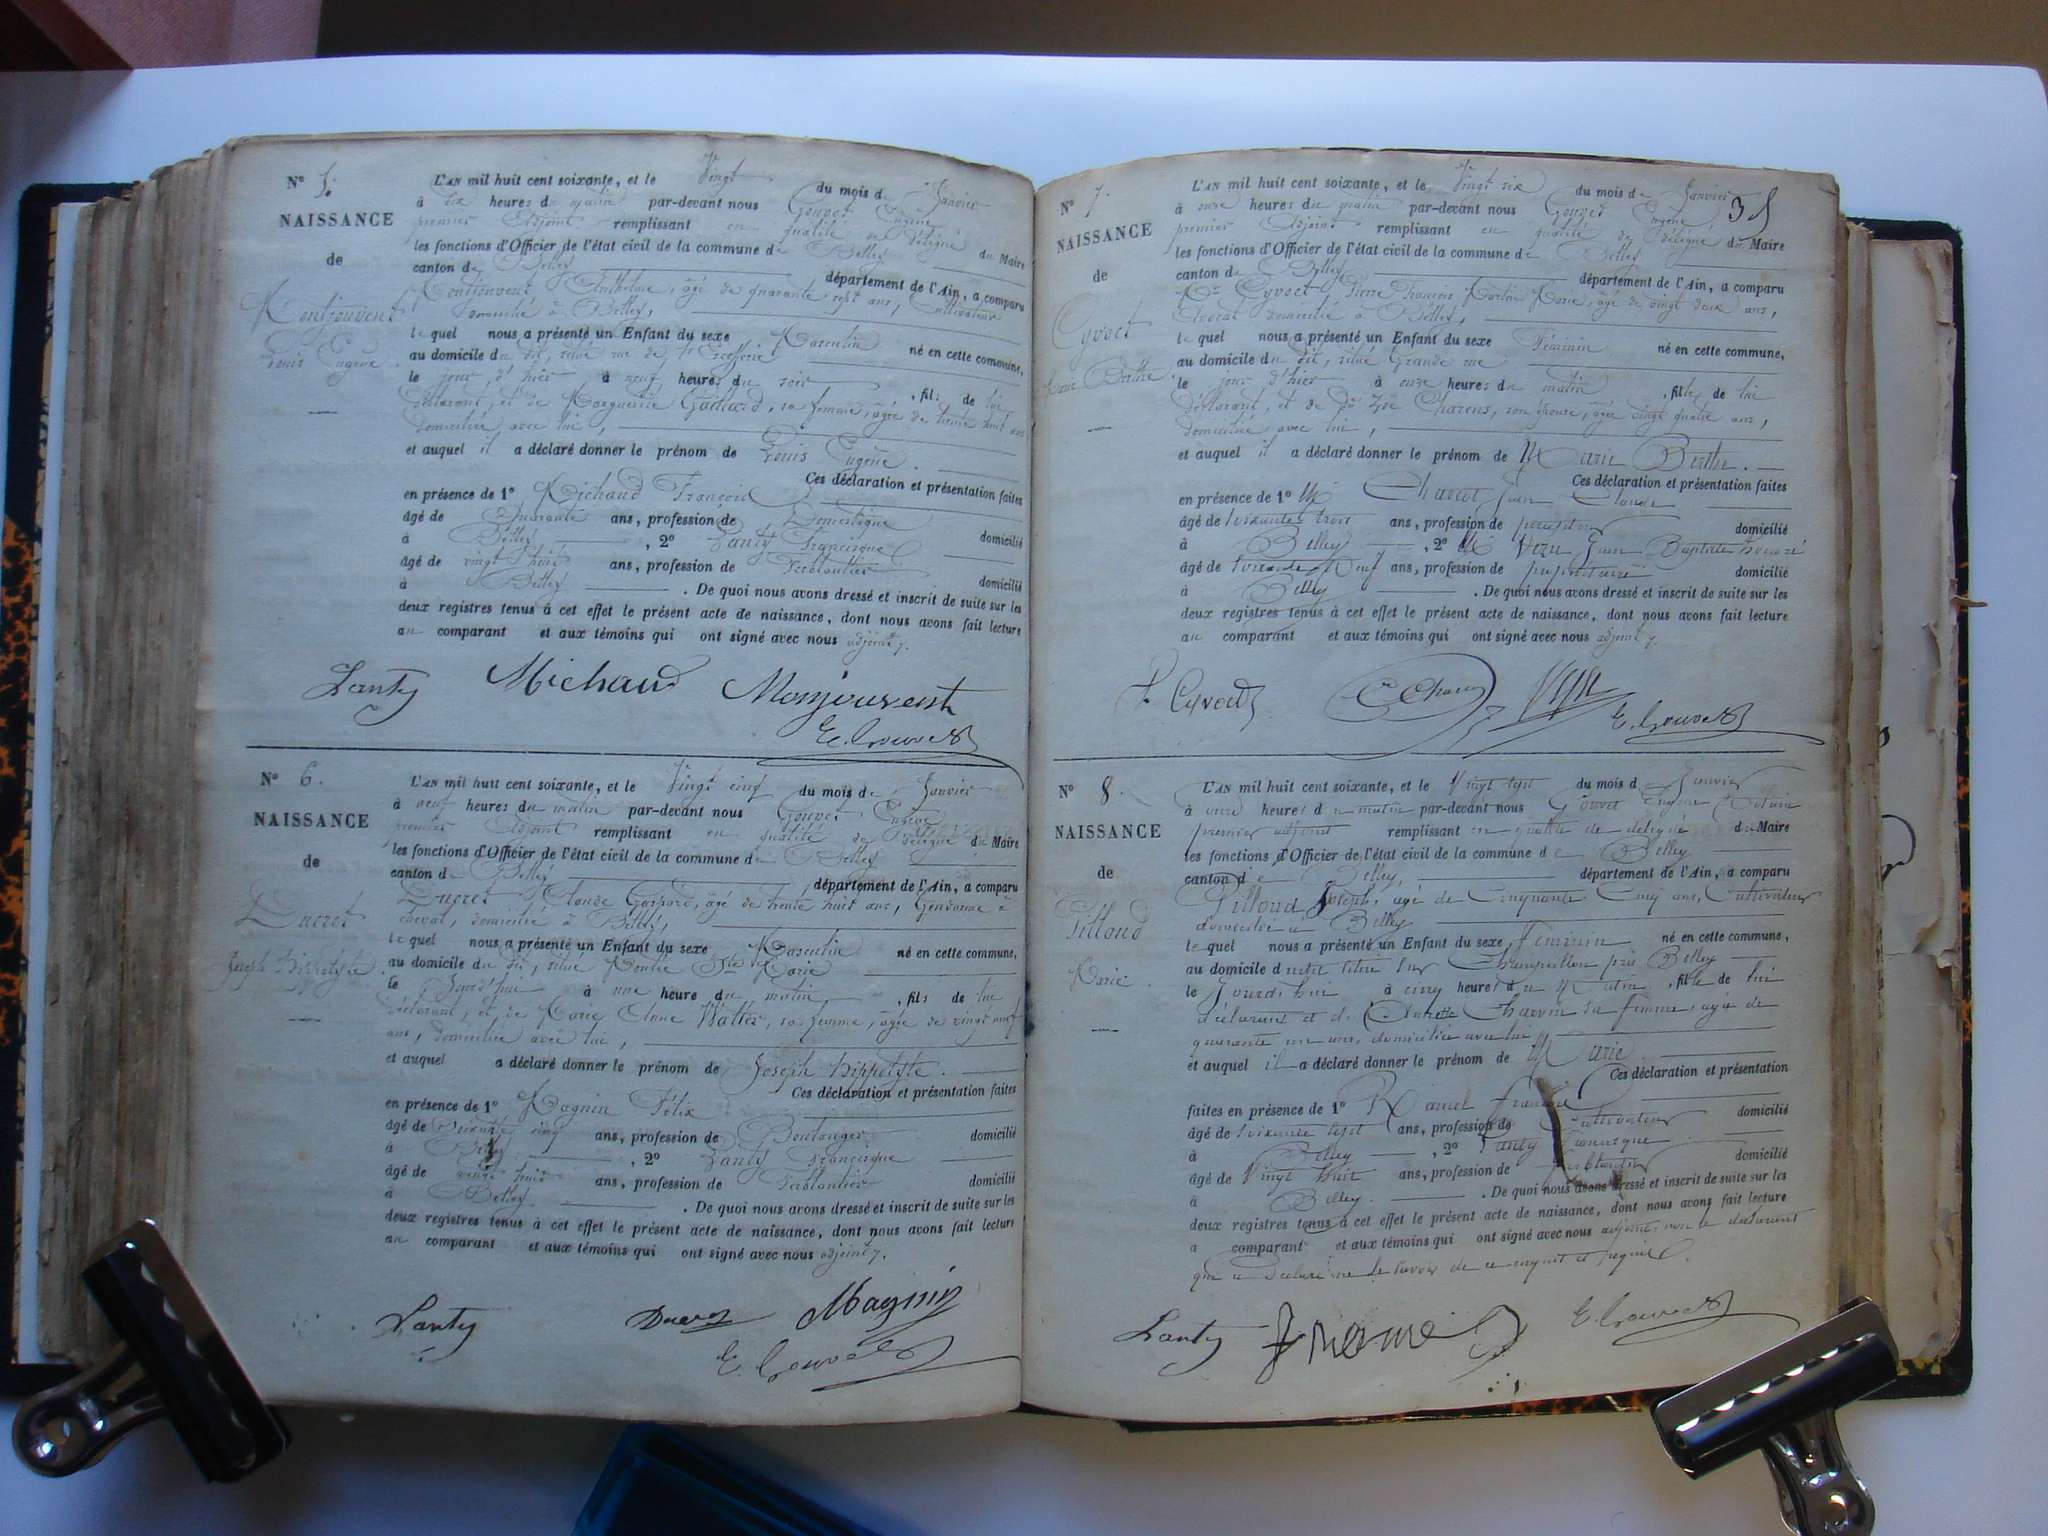 N° 5.
NAISSANCE
de
Montjouvent
Louis Eugène.
L'AN mil huit cent soixante, et le Vingt du mois de Janvier
à dix heures du matin par-devant nous Gouvet Eugène
premier Adjoint remplissant en qualité de délégué du Maire
les fonctions d'Officier de l'état civil de la commune de Belley
canton de Belley département de l'Ain, a comparu
Montjouvent Anthelme, âgé de quarante sept ans, Cultivateur
domicilié à Belley,
le quel nous a présenté un Enfant du sexe Masculin né en cette commune,
au domicile du dit, situé rue de
le jour d'hier à neuf heures du soir, fils de lui
déclarant, et de Marguerite Gaillard, sa femme, âgée de trente huit ans
domiciliée avec lui,
et auquel il a déclaré donner le prénom de Louis Eugène.
Ces déclaration et présentation faites
en présence de 1° Michaud François
âgé de Quarante ans, profession de Domestique domicilié
à Belley, 2° Lanty Francisque
âgé de vingt huit ans, profession de Ferblantier domicilié
à Belley. De quoi nous avons dressé et inscrit de suite sur les
deux registres tenus à cet effet le présent acte de naissance, dont nous avons fait lecture
au comparant et aux témoins qui ont signé avec nous adjoint.
Lanty Michaud Monjouvent
E. Gouvet
N° 6.
NAISSANCE
de
Ducret
Joseph hippolyte.
L'AN mil huit cent soixante, et le Vingt cinq du mois de Janvier
à neuf heures du matin par-devant nous Gouvet Eugène
premier Adjoint remplissant en qualité de délégué du Maire
les fonctions d'Officier de l'état civil de la commune de Belley
canton de Belley, département de l'Ain, a comparu
Ducret Claude Gaspard, âgé de trente huit ans, Gendarme à
cheval, domicilié à Belley,
le quel nous a présenté un Enfant du sexe Masculin né en cette commune,
au domicile du dit, situé Montée Ste Marie
le Jourd'hui à une heure du matin, fils de lui
déclarant, et de Marie Anne Walter, sa femme, âgée de vingt neuf
ans, domiciliée avec lui,
et auquel a déclaré donner le prénom de Joseph hippolyte.
Ces déclaration et présentation faites
en présence de 1° Magnin Félix
âgé de Soixante cinq ans, profession de Boulanger domicilié
à Belley, 2° Lanty Francisque
âgé de vingt huit ans, profession de Ferblantier domicilié
à Belley. De quoi nous avons dressé et inscrit de suite sur les
deux registres tenus à cet effet le présent acte de naissance, dont nous avons fait lecture
au comparant et aux témoins qui ont signé avec nous adjoint.
Lanty Ducret Magnin
E. Gouvet
N° 7.
NAISSANCE
de
Cyvoct
Marie Berthe.
L'AN mil huit cent soixante, et le Vingt six du mois de Janvier
à onze heures du matin par-devant nous Gouvet Eugène
premier Adjoint remplissant en qualité de délégué du Maire
les fonctions d'Officier de l'état civil de la commune de Belley
canton de Belley département de l'Ain, a comparu
Mr Cyvoct Pierre François Martin Marie, âgé de vingt deux ans,
Avocat domicilié à Belley,
le quel nous a présenté un Enfant du sexe Féminin né en cette commune,
au domicile du dit, situé Grande rue
le jour d'hier à onze heures du matin, fille de lui
déclarant, et de Zoé Charens, son épouse, âgée vingt quatre ans,
domiciliée avec lui,
et auquel il a déclaré donner le prénom de Marie Berthe.
Ces déclaration et présentation faites
en présence de 1° M Jean Claude
âgé de soixante trois ans, profession de domicilié
à Belley, 2° M Jean Baptiste honoré
âgé de soixante Neuf ans, profession de propriétaire domicilié
à Belley. De quoi nous avons dressé et inscrit de suite sur les
deux registres tenus à cet effet le présent acte de naissance, dont nous avons fait lecture
au comparant et aux témoins qui ont signé avec nous adjoint.
E. Gouvet
N° 8.
NAISSANCE
de
Pilloud
Marie.
L'AN mil huit cent soixante, et le Vingt sept du mois de Janvier
à onze heures du matin par-devant nous Gouvet Eugène
premier adjoint remplissant en qualité de délégué du Maire
les fonctions d'Officier de l'état civil de la commune de Belley
canton de Belley, département de l'Ain, a comparu
Pilloud Joseph, âgé de Cinquante Cinq ans, Cultivateur
domicilié à Belley
le quel nous a présenté un Enfant du sexe Féminin né en cette commune,
au domicile dudit situé sur près Belley
le Jourd'hui à cinq heures du Matin, fille de lui
déclarant et de Charvin sa femme, agée de
quarante un ans, domiciliée avec lui
et auquel il a déclaré donner le prénom de Marie
Ces déclaration et présentation
faites en présence de 1° Ramel
âgé de soixante sept ans, profession de Cultivateur domicilié
à Belley, 2° Lanty Francisque
âgé de Vingt huit ans, profession de ferblantier domicilié
à Belley. De quoi nous avons dressé et inscrit de suite sur les
deux registres tenus à cet effet le présent acte de naissance, dont nous avons fait lecture
a comparant et aux témoins qui ont signé avec nous adjoint, non le déclarant
qui a déclaré ne le savoir de ce enquit et requis.
Lanty E. Gouvet